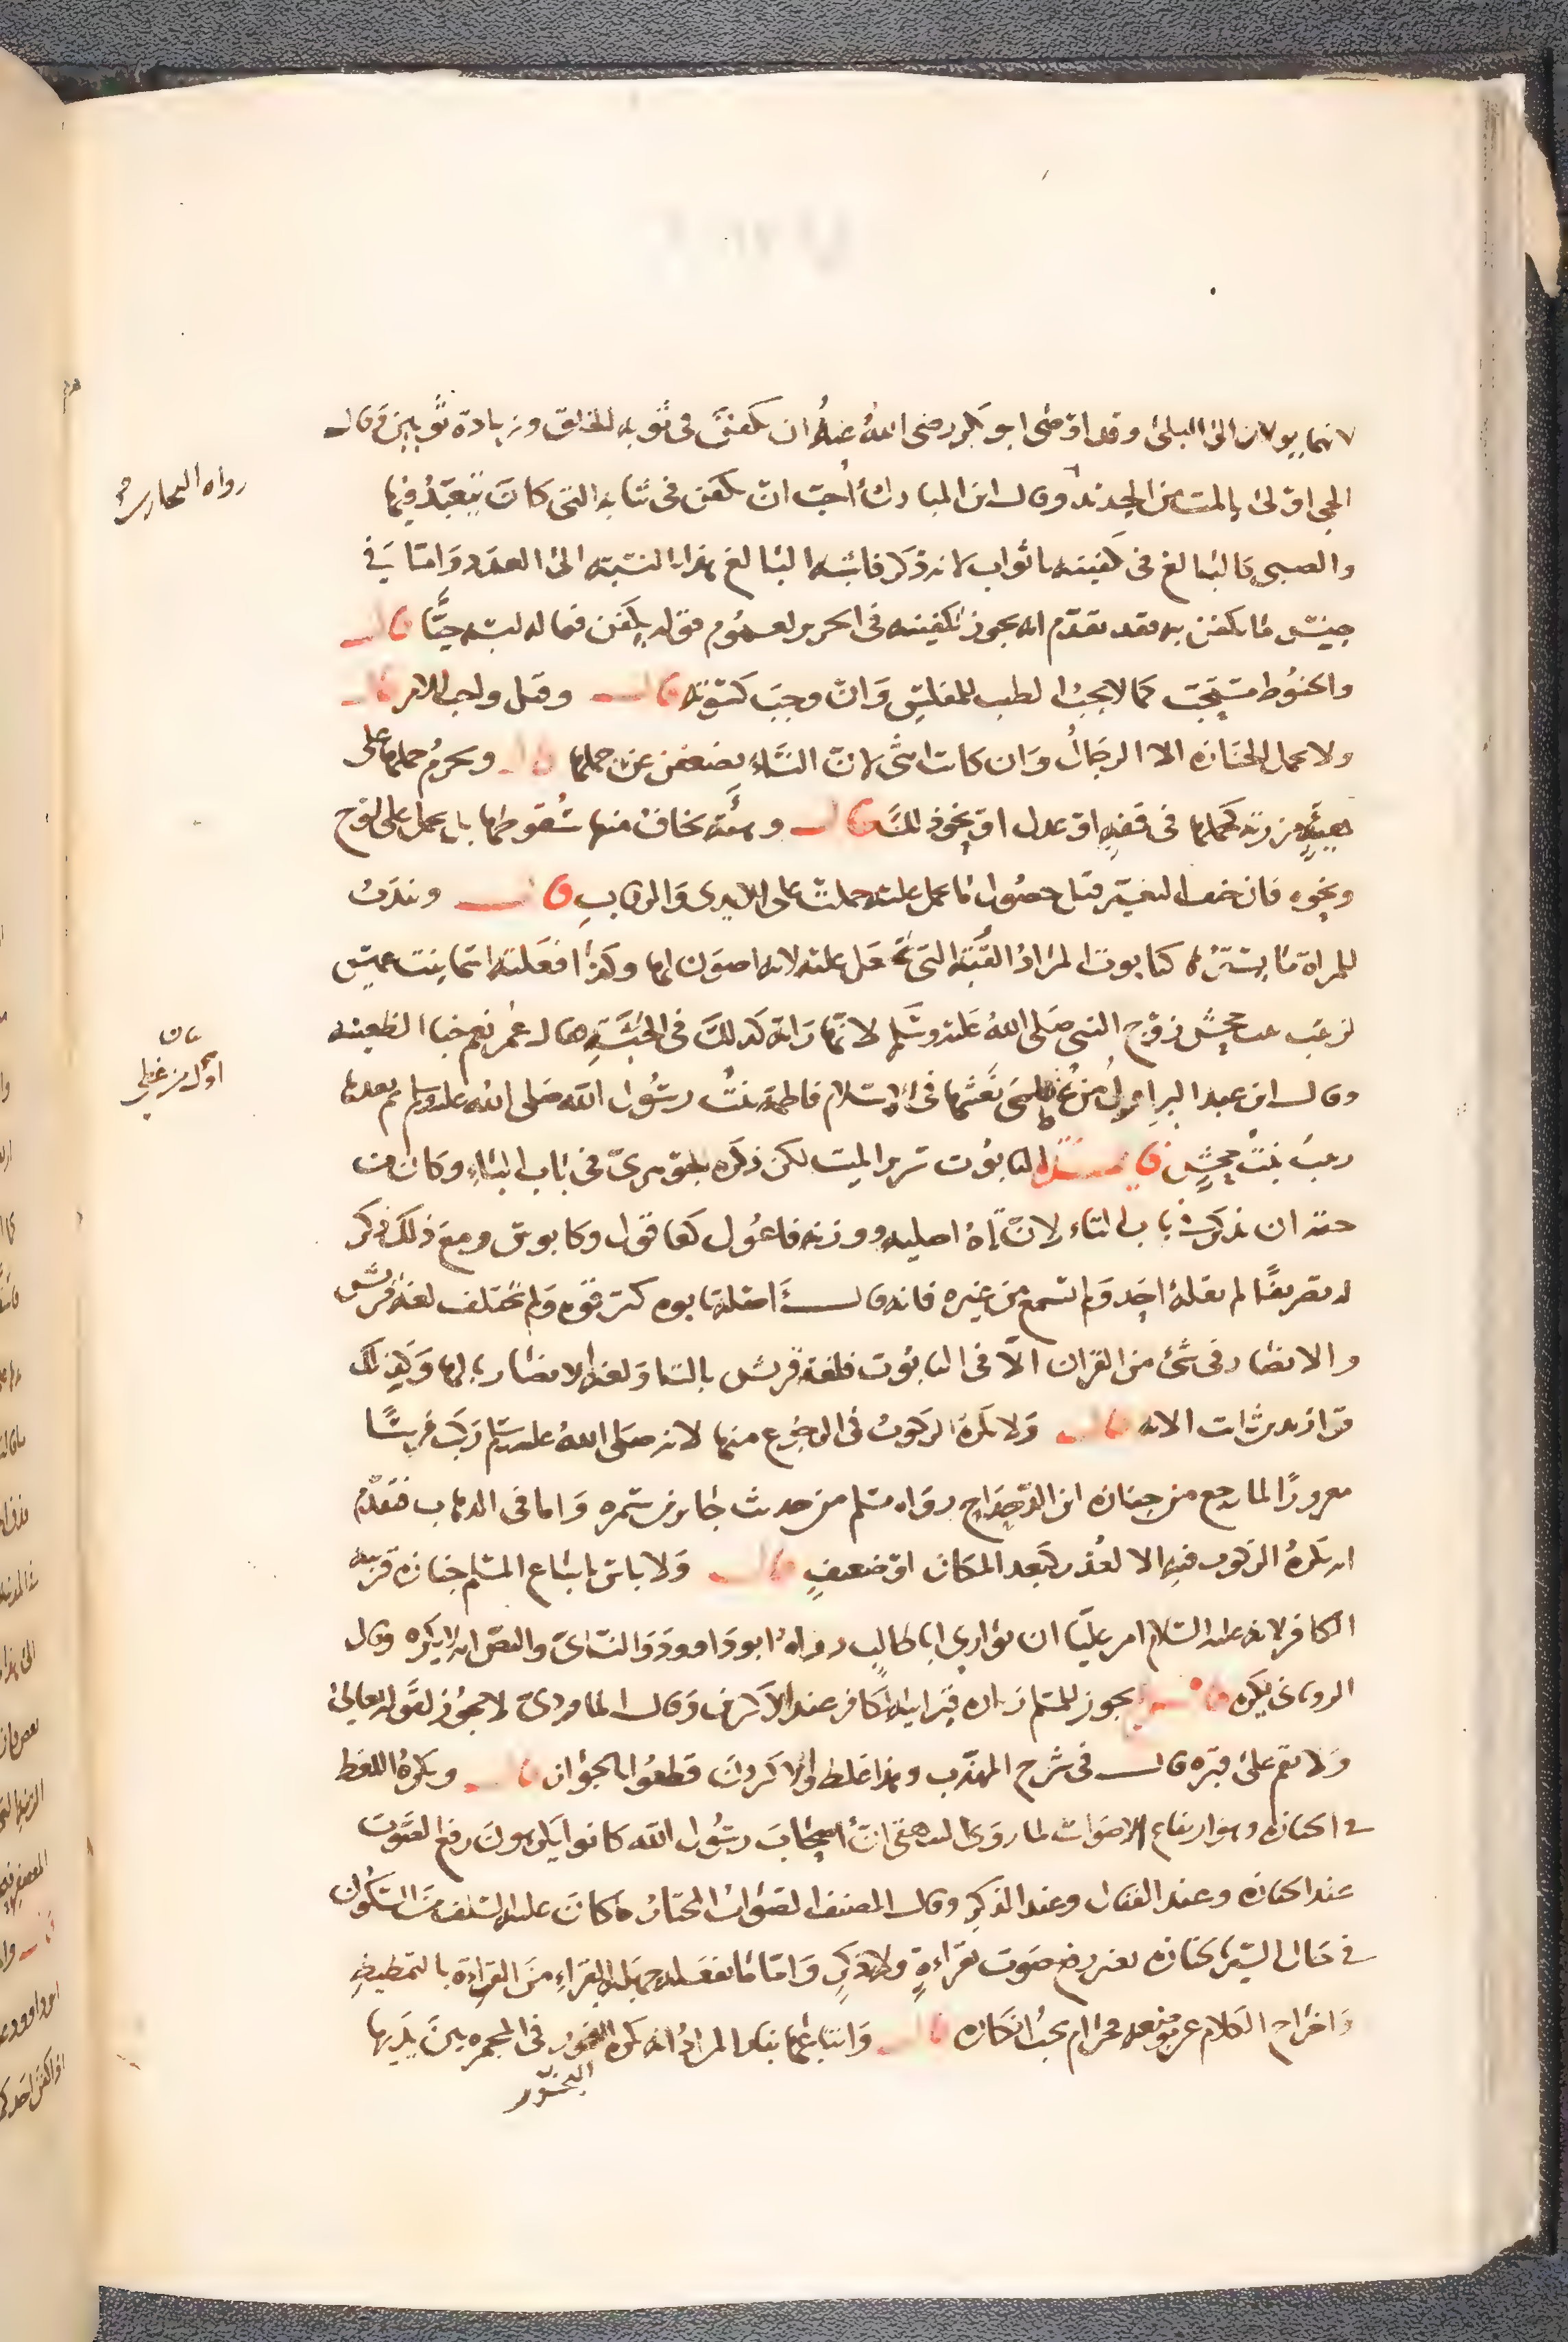 لانهما يولان الى البلى وقد اوصى ابو بكر رضى الله عنه ان يكفن فى ثوبه الخلق وزيادة ثوبين وقال
الحى اولى بالجديد من الميت وقال ابن المبارك أحب ان يكفن فى ثيابه التى كان يتعبد فيها
رواه البخارى
والصبى كالبالغ فى تكفينه باثواب لانه ذكر فاشبه البالغ هذا بالنسبة الى العدد واما فى
جنس ما يكفن به فقد تقدم انه يجوز تكفينه فى الحرير لعموم قوله يكفن فيما له لبسه حيًّا قال
والحنوط مستحب كما لا يجب الطيب للمفلس وان وجب كسوته قال وقيل واجب للامر قال
ولا يحمل الجنازه الا الرجال وان كانت انثى لان النساء يضعفن عن حملها قال ويحرم حملها على
هيئةٍ مزريه كحملها فى قفه او عدل او نحو ذلك قال وهيئة يخاف منها سقوطها بل يحمل على لوح
ونحوه فان خيف التغير قبل حصول ما يحمل عليه حملت على الايدى والرقاب قال ويندب
للمراة ما يسترها كتابوت المراد القبة التى تجعل عليه لانه اصون لها وكذا فعلته اسما بنت عميس
لزينب بنت جحش زوج النبى صلى الله عليه وسلم لانها راته كذلك فى الحبشة فقال عمر نعم خبا الظعينه
وقال ابن عبد البر اول من غطى نعشها فى الاسلام فاطمة بنت رسول الله صلى الله عليه وسلم ثم بعدها
بيان
اول من غطى
زينب بنت جحش فايدة التابوت سرير الميت لكن ذكره الجوهرى فى باب الباء وكان من
حقه ان يذكر فى باب التاء لان تاه اصليه ووزنه فاعول كعاقول وكابوس ومع ذلك فذكر
له تصريفًا لم يقله احد ولم تسمع من غيره فانه قال اصله تابوه كترقوه ولم تختلف لغة قريش
والانصار فى شئ من القران الا فى التابوت فلغة قريش بالتا ولغة الانصار بالها وكذلك
قرا زيد بن ثابت الايه قال ولا يكره الركوب فى الرجوع منها لانه صلى الله عليه وسلم ركب فرسًا
معرورًا لما رجع من جنازه ابن الدحداح رواه مسلم من حديث جابر بن سمره واما فى الذهاب فتقدم
انه يكره الركوب فيه الا لعذر كبعد المكان او ضعف قال ولا باس باتباع المسلم جنازه قريبه
الكافر لانه عليه السلام امر عليًا ان يوارى ابا طالب رواه ابو داوود والنسائى والنص انه لا يكره وقال
الرويانى يكره فرع يجوز للمسلم زياره قبر ابيه الكافر عند الاكثرين وقال الماوردى لا يجوز لقوله تعالى
ولا تقم على قبره قال فى شرح المهذب وهذا غلط والاكثرون قطعوا بالجواز قال ويكره اللغط
فى الجنازه وهو ارتفاع الاصوات لما روى البيهقى ان اصحاب رسول الله كانوا يكرهون رفع الصوت
عند الجنازه وعند القتال وعند الذكر وقال المصنف الصواب المختار ما كان عليه السلف من السكون
فى حال السير بجنازه بغير رفع صوت بقراءة ولا ذكر واما ما يفعله جهله القراء من القراءة بالتمطيط
واخراج الكلام عن موضعه فحرام يجب انكاره قال واتباعها بنار المراد انه يكره البخور فى المجمره بين يديها
البخور